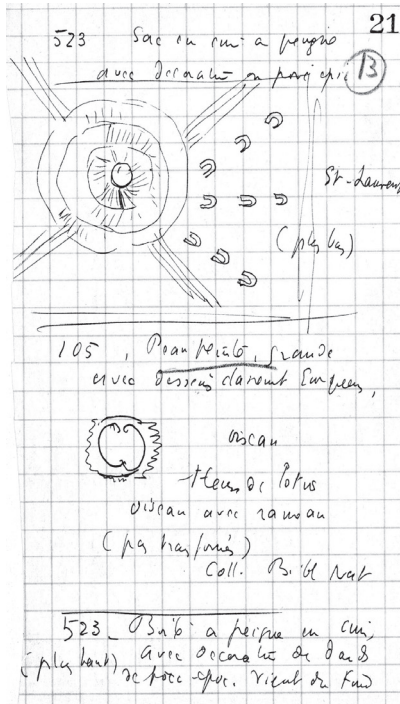 21
523 Sac en cuir a peigne
avec decoration en porc epic
B
St-Laurent
(plus bas)
105, Peau peinte, grande
avec dessein clairement Européen,
oiseau
fleurs de lotus
oiseau avec rameau
(pas transformés)
Coll. Bibl Nat
523_ Boite a peigne en cuir,
(plus haut) avec decoration de dards
de porc-epic. Vient du Fond